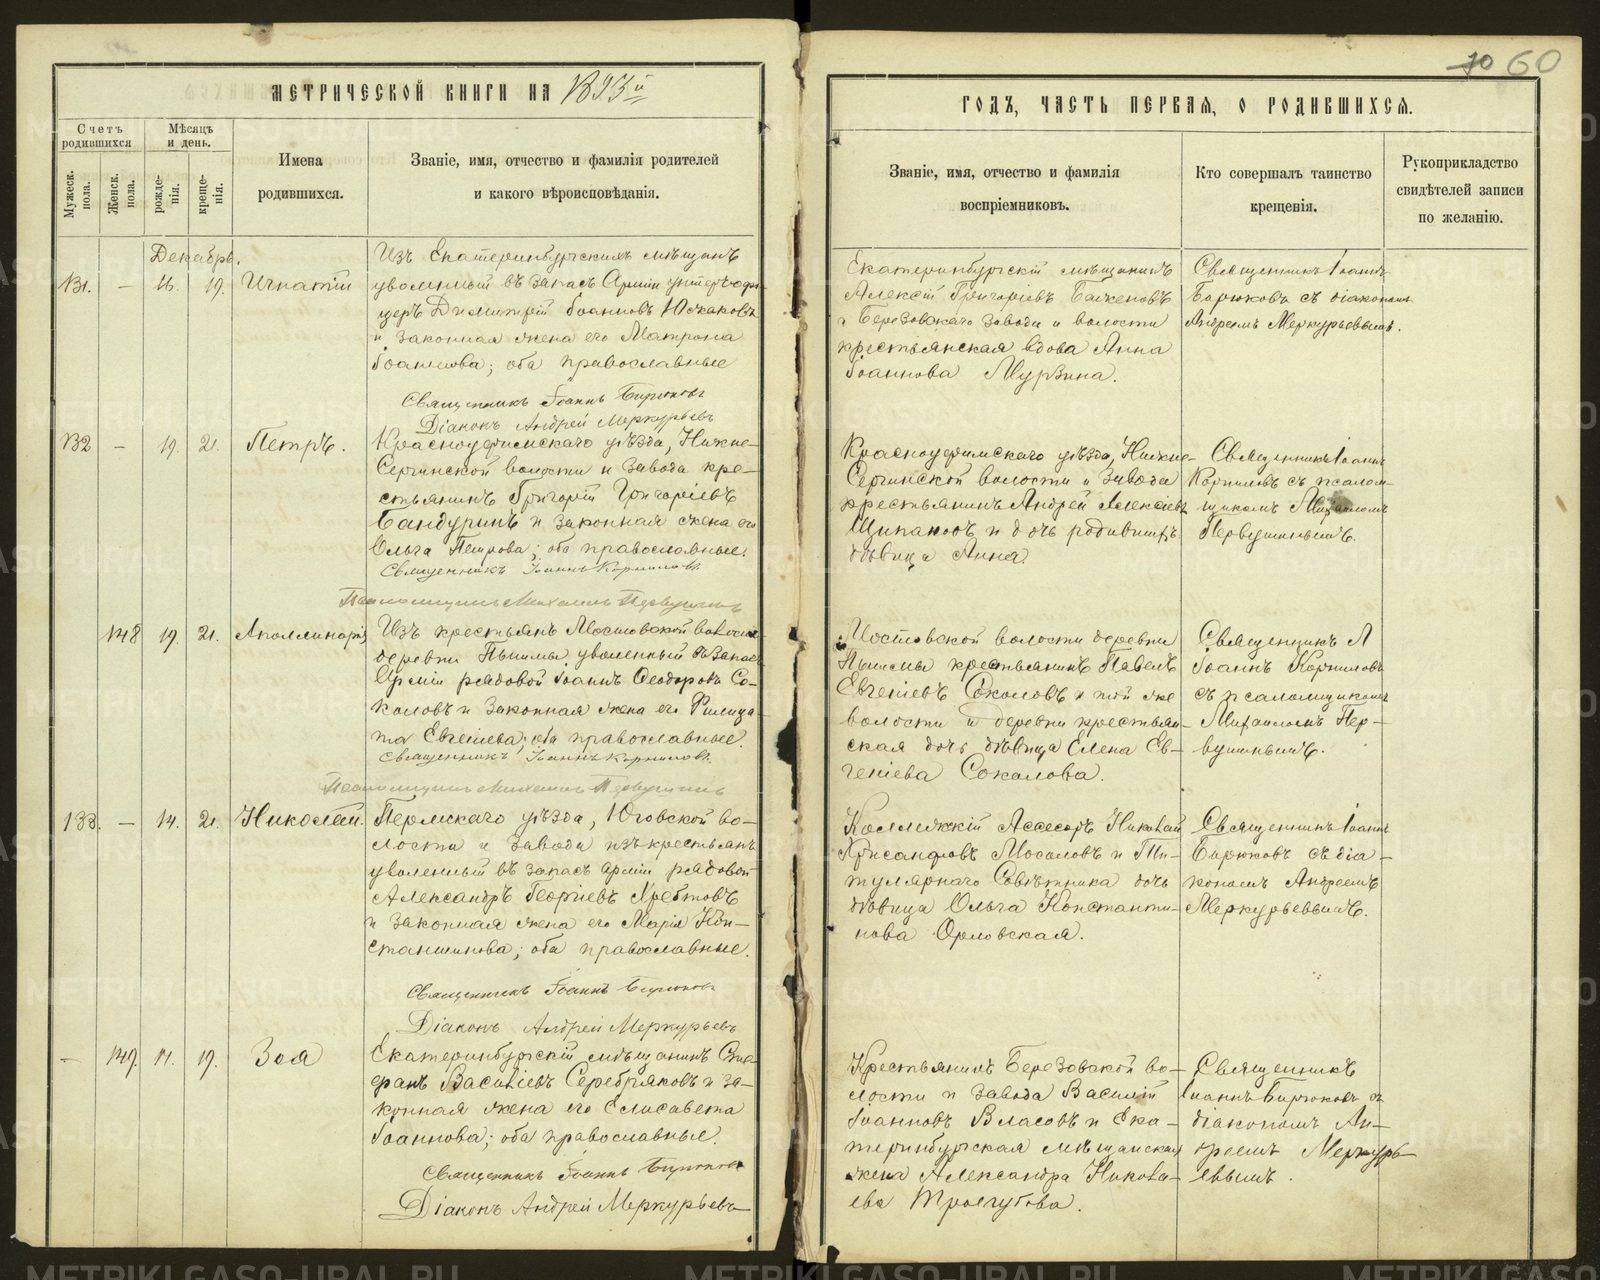 МЕТРИЧЕСКОЙ КНИГИ НА 1893й
Счетъ родившихся
Мѣсяцъ и день.
Мужеск. пола.
Женск. пола.
рожденія.
крещенія.
Имена
родившихся.
Званіе, имя, отчество и фамилія родителей
и какого вѣроисповѣданія.
Декабрь.
131. — 16. 19. Игнатій
Изъ Екатеринбургскихъ мѣщанъ
уволенный въ запасъ Арміи унтеръ-офи-
церъ Димитрій Іоанновъ
и законная жена его Матрона
Іоаннова; оба православные
Священникъ Іоаннъ Бирюковъ
Діаконъ Андрей Меркурьевъ
132 — 19. 21. Петръ.
Красноуфимскаго уѣзда, Нижне-
Сергинской волости и завода кре-
стьянинъ Григорій Григоріевъ
Бандуринъ и законная жена его
Ольга Петрова; оба православные.
Священникъ Іоаннъ Корниловъ.
Псаломщикъ Михаилъ Первушинъ
148 19. 21. Аполлинарія
Изъ крестьянъ Мостовской волости
деревни Пышмы уволенный въ запасъ
Арміи рядовой Іоаннъ Ѳеодоровъ Со-
коловъ и законная жена его Филица-
та Евгеніева; оба православные.
Священникъ Іоаннъ Корниловъ.
Псаломщикъ Михаилъ Первушинъ
133. — 14. 21. Николай.
Пермскаго уѣзда, Юговской во-
лости и завода изъ крестьянъ
уволенный въ запасъ арміи рядовой
Александръ Георгіевъ Хребтовъ
и законная жена его Марія Кон-
стантинова; оба православные.
Священникъ Іоаннъ Бирюковъ
Діаконъ Андрей Меркурьевъ
— 149. 11. 19. Зоя
Екатеринбургскій мѣщанинъ Сте-
фанъ Василіевъ Серебряковъ и за-
конная жена его Елисавета
Іоаннова; оба православные.
Священникъ Іоаннъ Бирюковъ
Діаконъ Андрей Меркурьевъ
60
ГОДЪ, ЧАСТЬ ПЕРВАЯ, О РОДИВШИХСЯ.
Званіе, имя, отчество и фамилія
воспріемниковъ.
Кто совершалъ таинство
крещенія.
Рукоприкладство
свидѣтелей записи
по желанію.
Екатеринбургскій мѣщанинъ
Алексій Григоріевъ Баженовъ
и Березовскаго завода и волости
крестьянская вдова Анна
Іоаннова Мурзина.
Священникъ Іоаннъ
Бирюковъ съ діакономъ
Андреемъ Меркурьевымъ.
Красноуфимскаго уѣзда, Нижне-
Сергинской волости и завода
крестьянинъ Андрей Алексіевъ
Щипановъ и дочь родившихъ
дѣвица Анна.
Священникъ Іоаннъ
Корниловъ съ псалом-
щикомъ Михаиломъ
Первушинымъ.
Мостовской волости деревни
Пышмы крестьянинъ Павелъ
Евгеніевъ Соколовъ и той же
волости и деревни крестьян-
ская дочь дѣвица Елена Ев-
геніева Соколова.
Священникъ
Іоаннъ Корниловъ
съ псаломщикомъ
Михаиломъ Пер-
вушинымъ.
Коллежскій Ассесоръ Николай
Хрисанфовъ Мосоловъ и Ти-
тулярнаго Совѣтника дочь
дѣвица Ольга Константи-
нова Орловская.
Священникъ Іоаннъ
Бирюковъ съ діа-
кономъ Андреемъ
Меркурьевымъ.
Крестьянинъ Березовской во-
лости и завода Василій
Іоанновъ Власовъ и Ека-
теринбургская мѣщанская
жена Александра Никола-
ева Трясугова.
Священникъ
Іоаннъ Бирюковъ съ
діакономъ Ан-
дреемъ Меркурь-
евымъ.
METRIKI.GASO-URAL.RU